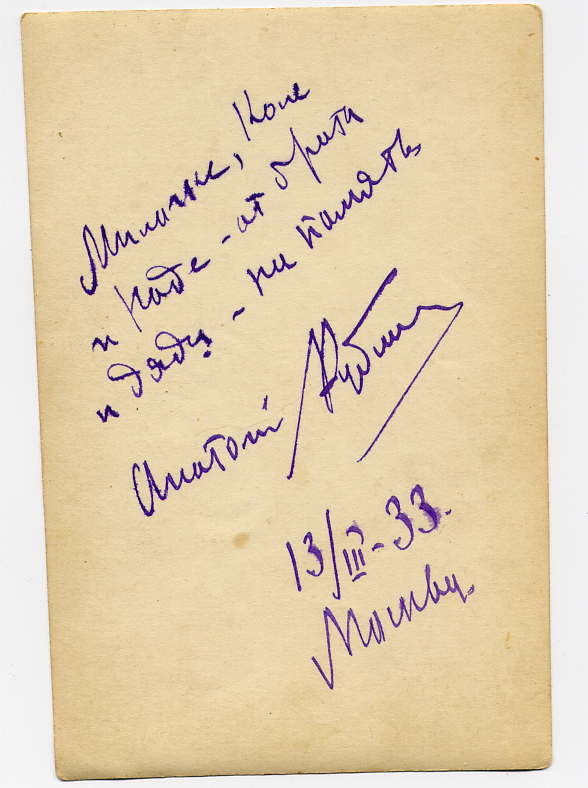 Милочке, Коле
и Наде - от брата
и дяди - на память
Анатолий
13/III - 33.
Москва.